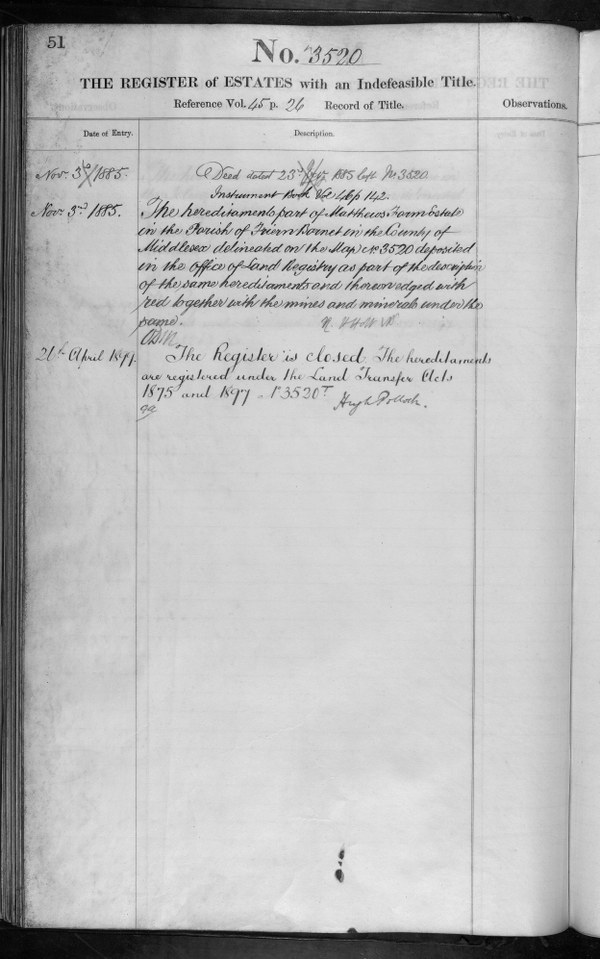 51
No. 3520
THE REGISTER of ESTATES with an Indefeasible Title.
Reference Vol. 45 p. 26 Record of Title.
Observations.
Date of Entry.
Description.
Nov. 3rd 1885.
Deed dated 23rd 1885 left No 3520
Instrument Book Vol p 142.
Nov. 3rd 1885.
The hereditaments part of Matthews Farm Estate
in the Parish of Friern Barnet in the County of
Middlesex delineated on the Map No 3520 deposited
in the office of Land Registry as part of the description
of the same hereditaments and thereon edged with
red together with the mines and minerals under the
same.
26th April 1899.
The Register is closed The hereditaments
are registered under the Land Transfer Acts
1875 and 1897 No 3520T
Hugh Pollock.